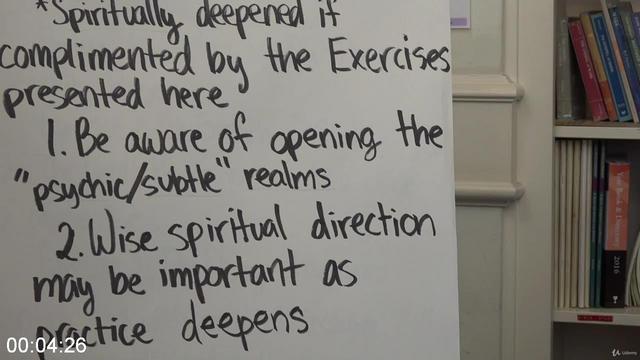 *Spiritually deepened if
complimented by the Exercises
presented here
1. Be aware of opening the
"psychic/subtle" realms
2. Wise spiritual direction
may be important as
practice deepens
Year Book & Directory
2016
00:04:26
Udemy